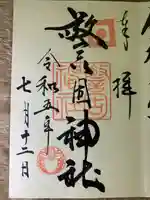 奉拝
警固神社
令和五年
七月十二日